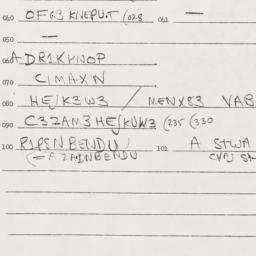 040 OFG3 KNEPU.T (028 041 —
050 —
060 A DR1KKNOP
070 CIMAXN
080 HE/K3W3 / MENX83 VAB
090 C3ZAM3 HE/KUW3 (235 (330
100 R1PSN BENDU/ 102 A STWA
(= A ZAINBENDU CVPJ SA